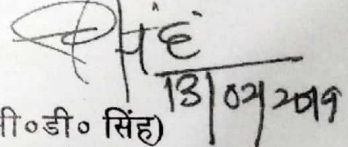 सिंह
13/02/2019
ी०डी० सिंह)